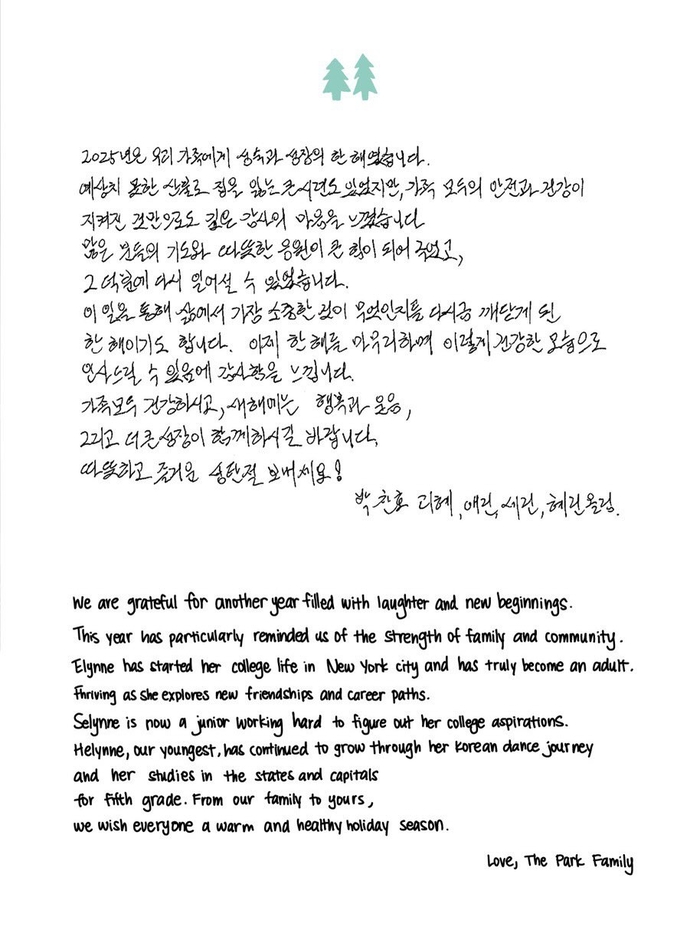 2025년은 우리 가족에게 성숙과 성장의 한 해였습니다.
예상치 못한 산불로 집을 잃는 큰 시련도 있었지만, 가족 모두의 안전과 건강이
지켜진 것만으로도 깊은 감사의 마음을 느꼈습니다
많은 분들의 기도와 따뜻한 응원이 큰 힘이 되어 주었고,
그 덕분에 다시 일어설 수 있었습니다.
이 일을 통해 삶에서 가장 소중한 것이 무엇인지를 다시금 깨닫게 된
한 해이기도 합니다. 이제 한 해를 마무리하며 이렇게 건강한 모습으로
인사드릴 수 있음에 감사함을 느낍니다.
가족모두 건강하시고, 새해에는 행복과 웃음,
그리고 더 큰 성장이 함께하시길 바랍니다.
따뜻하고 즐거운 성탄절 보내세요!
박찬호 리혜, 애린, 세린, 혜린 올림.
We are grateful for another year filled with laughter and new beginnings.
This year has particularly reminded us of the strength of family and community.
Elynne has started her college life in New York city and has truly become an adult.
Thriving as she explores new friendships and career paths.
Selynne is now a junior working hard to figure out her college aspirations.
Helynne, our youngest, has continued to grow through her Korean dance journey
and her studies in the states and capitals
for fifth grade. From our family to yours,
we wish everyone a warm and healthy holiday season.
Love, The Park Family